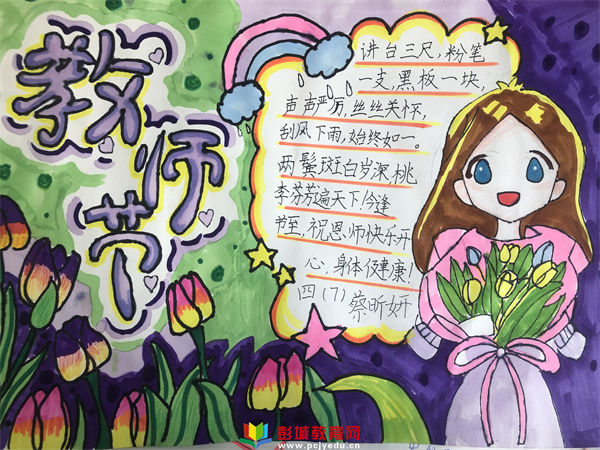 教师节
讲台三尺,粉笔
一支,黑板一块,
声声严厉,丝丝关怀,
刮风下雨,始终如一。
两鬓斑白岁深,桃
李芬芳遍天下!今逢
书至,祝恩师快乐开
心,身体健康!
四(7)蔡昕妍
彭城教育网
www.pcjyedu.cn